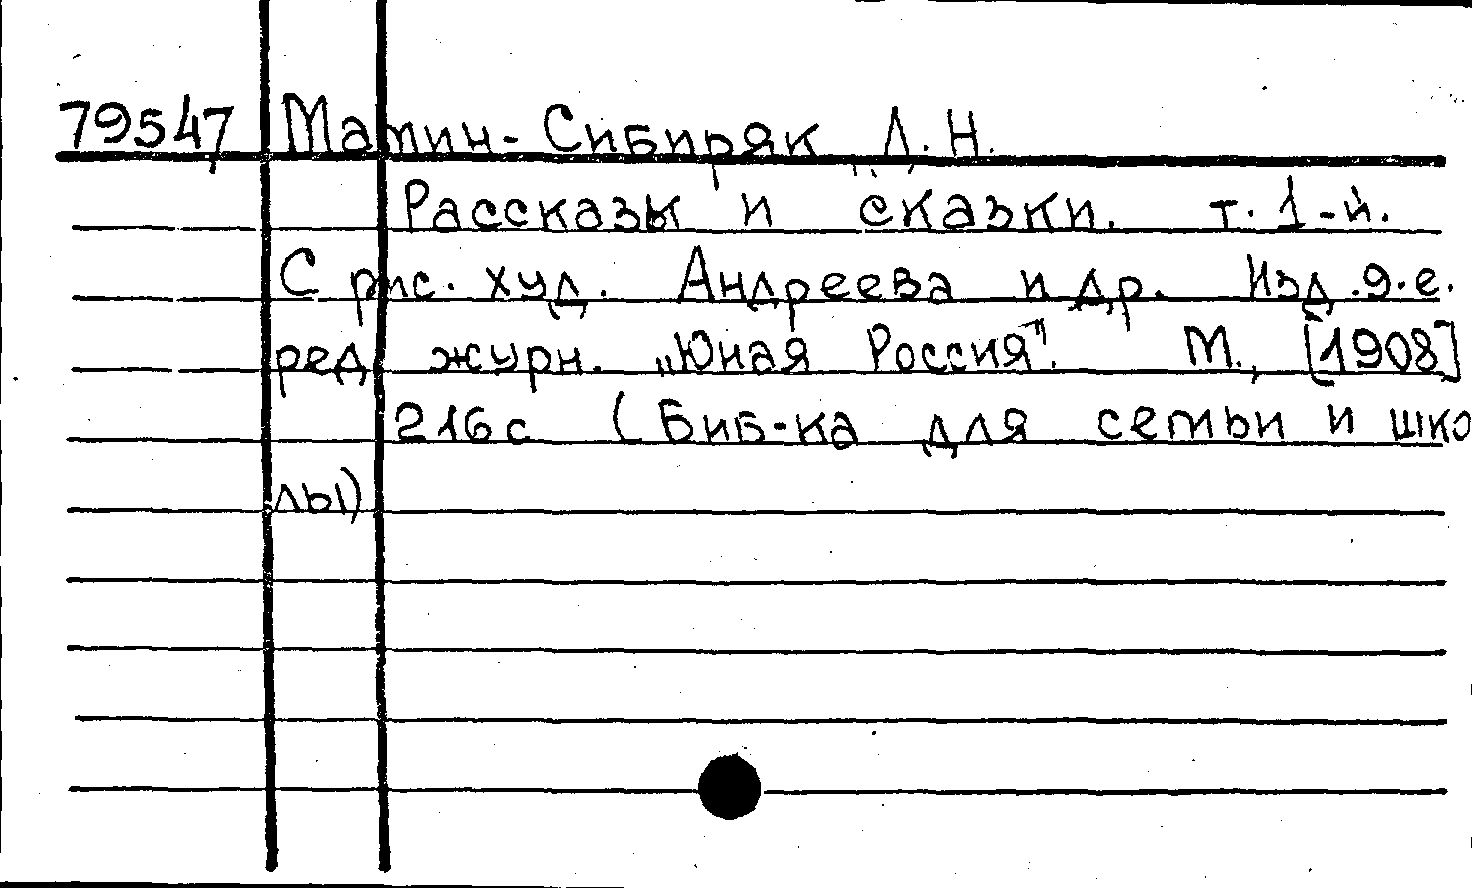 79547 Мамин-Сибиряк Д.Н.
Рассказы и сказки. т. 1-й.
С рис. худ. Андреева и др. Изд. 9-е.
ред. журн. „Юная Россия". М., [1908]
216с (Биб-ка для семьи и шко
лы)